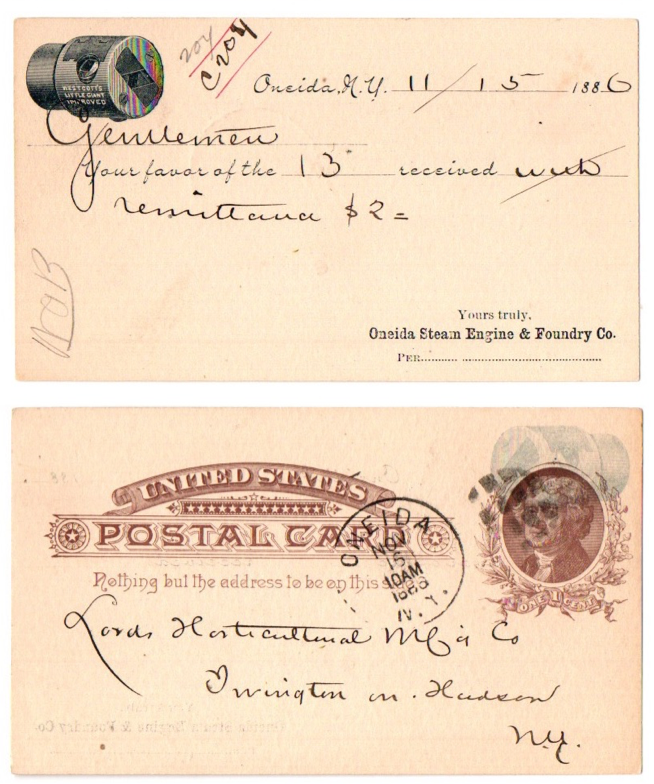 WESTCOTT'S
LITTLE GIANT
IMPROVED
204
C204
Oneida, N.Y. 11/15 1886
Gentlemen
Your favor of the 13 received with
remittance $2=
Yours truly,
Oneida Steam Engine & Foundry Co.
PER
UNITED STATES
POSTAL CARD
Nothing but the address to be on this side
ONEIDA
NOV
15
10AM
1886
N.Y.
ONE CENT
Lords Horticultural Mf'g Co
Irvington on Hudson
N.Y.